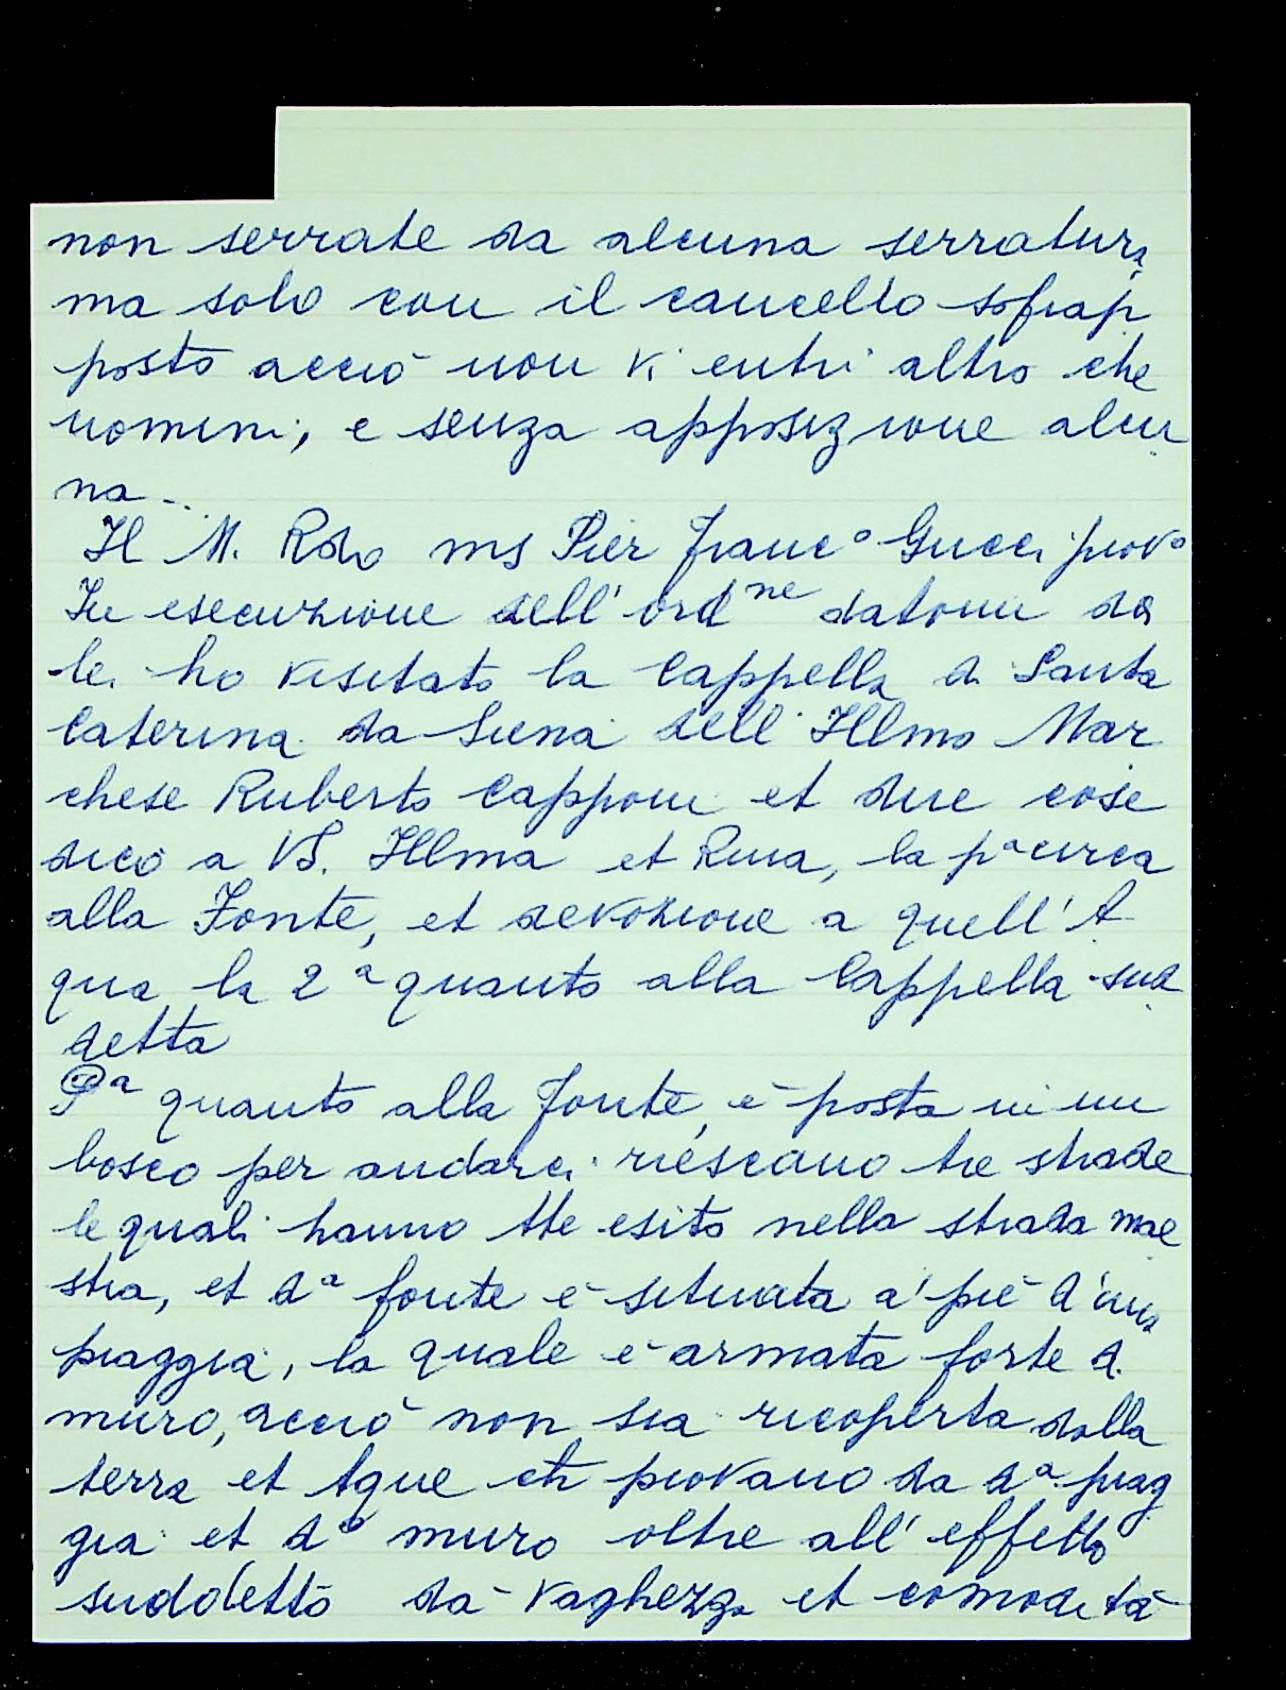 non serrate da alcuna serratura
ma solo con il cancello sofrap
posto acciò non vi entri altro che
uomini, e senza apposizione alcu
na -
Il M. Rdo ms Pier Franc° Gucci prov°
In esecuzione dell'ord ne datomi da
lei ho visitato la Cappella di Santa
Caterina da Siena dell Illmo Mar
chese Ruberto Capponi et due cose
dico a VS. Illma et Rma, la pa circa
alla Fonte, et devozione a quell'A
qua la 2a quanto alla Cappella sud
detta
Pa quanto alla fonte, è posta in un
bosco per andarci riescano tre strade
le quali hanno tte esito nella strada mae
stra, et da fonte è situata a' piè d'una
piaggia, la quale è armata forte di
muro, acciò non sia ricoperta dalla
terra et Aque ch piovano da da piag
gia et do muro oltre all'effetto
suddetto dà vaghezza et comodità